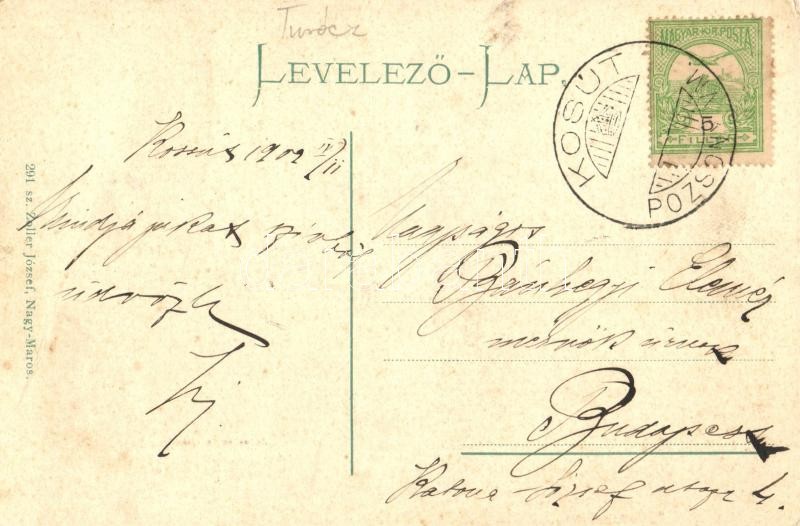 Turócz
LEVELEZŐ-LAP.
MAGYAR·KIR·POSTA
5
FILLÉR
KOSÚT
POZS
291 sz. Zoller József, Nagy-Maros.
Kossút 1909 IV/11
Mindjájukat szívből
üdvözli
Nagyságos
Bánhegyi Elemér
mérnök úrnak
Budapest
Katona József utca 4.